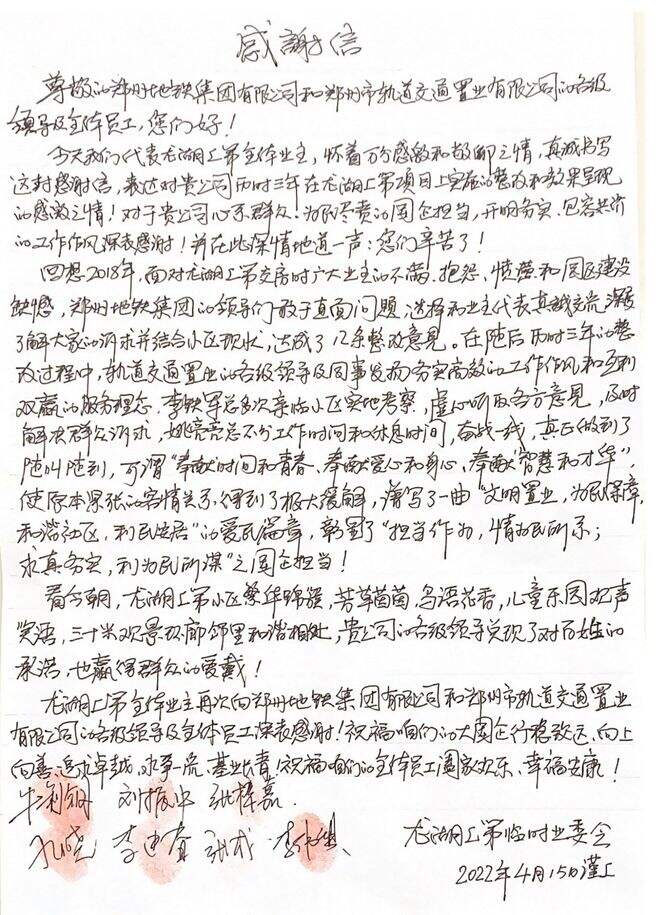 感謝信
尊敬的郑州地铁集团有限公司和郑州市轨道交通置业有限公司的各级
领导及全体员工，您们好！
今天我们代表龙湖上第全体业主，怀着万分感激和敬仰之情，真诚书写
这封感谢信，表达对贵公司历时三年在龙湖上第项目上实施的整改和效果呈现
的感激之情！对于贵公司心系群众、为民尽责的国企担当，开明务实、包容共济
的工作作风深表感谢！并在此深情地道一声：您们辛苦了！
回想2018年，面对龙湖上第交房时广大业主的不满、抱怨、愤慨和园区建设
缺憾，郑州地铁集团的领导们敢于直面问题，选择和业主代表真诚交流，
了解大家的诉求并结合小区现状，达成了12条整改意见。在随后历时三年的整
改过程中，轨道交通置业的各级领导及同事发扬务实高效的工作作风和互利
双赢的服务理念，李铁军总多次亲临小区实地考察，虚心听取各方意见，及时
解决群众诉求，姚亮亮总不分工作时间和休息时间，奋战一线，真正做到了
随叫随到，可谓"奉献时间和青春、奉献爱心和身心、奉献智慧和才华"，
使原本紧张的客情关系得到了极大缓解，谱写了一曲"文明置业，为民保障，
和谐社区，利民安居"的爱民篇章，彰显了"担当作为，情为民所系；
求真务实，利为民所谋"之国企担当！
看今朝，龙湖上第小区繁华锦簇，芳草茵茵，鸟语花香，儿童乐园欢声
笑语，三十米观景环廊邻里和谐相处，贵公司的各级领导兑现了对百姓的
承诺，也赢得群众的爱戴！
龙湖上第全体业主再次向郑州地铁集团有限公司和郑州市轨道交通置业
有限公司的各级领导及全体员工深表感谢！祝福咱们的大国企行稳致远、向上
向善、追求卓越、永争一流、基业长青！祝福咱们的全体员工阖家欢乐、幸福安康！
刘振华
李建
龙湖上第临时业委会
2022年4月15日谨上